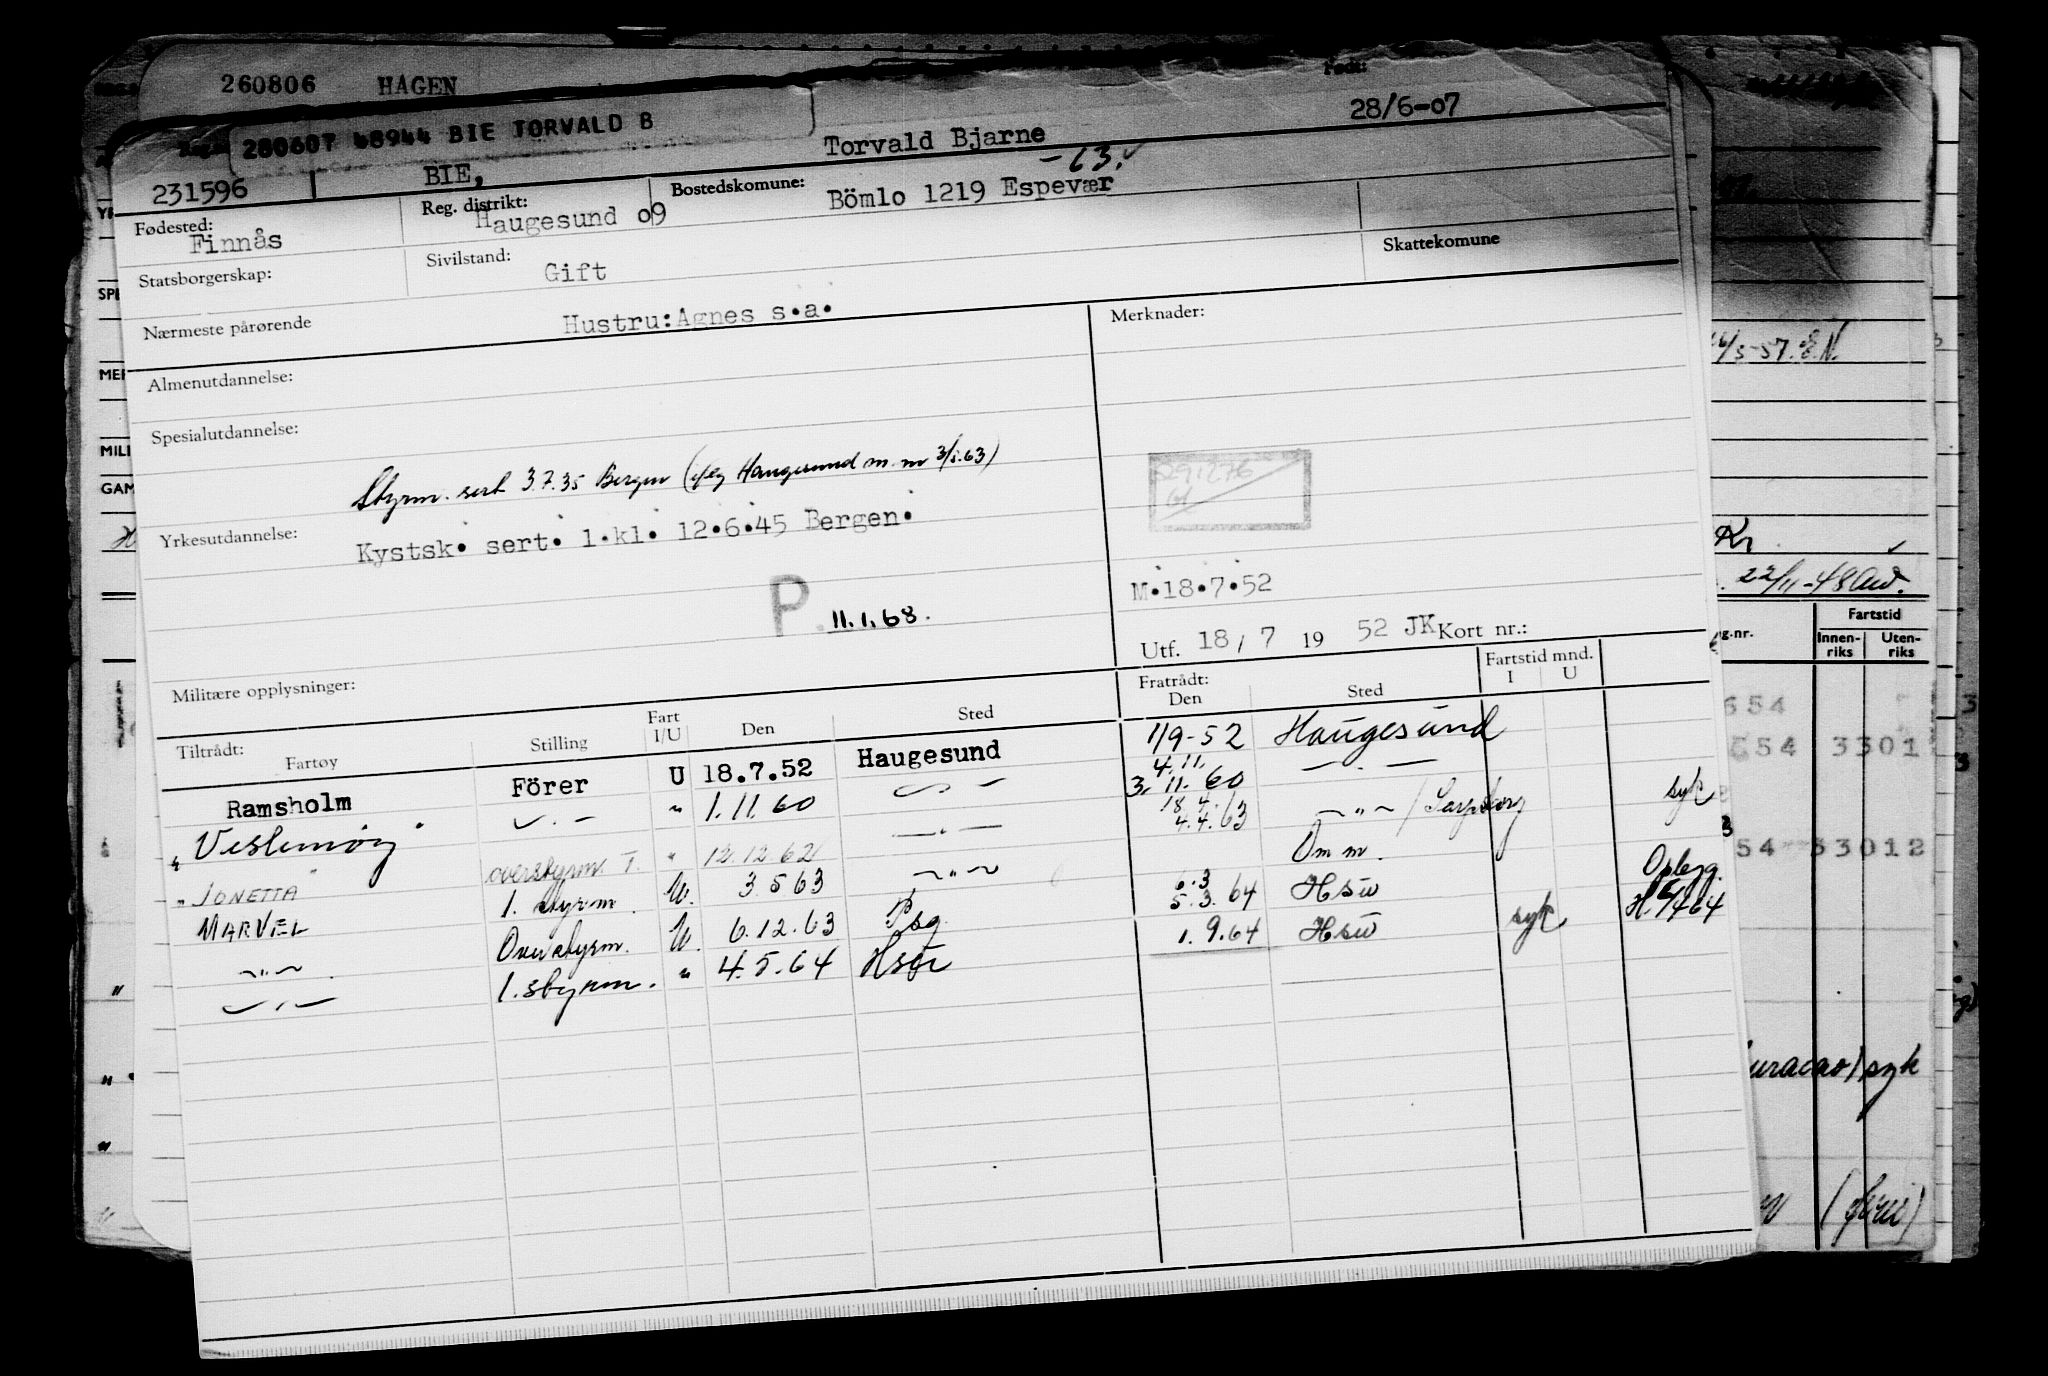 260806 HAGEN
Født:
28/6-07
280607 48944 BIE TORVALD B
Torvald Bjarne
-63.
231596 BIE,
Fødested: Finnås
Reg. distrikt: Haugesund 09
Bostedskomune: Bömlo 1219 Espevær
Statsborgerskap:
Sivilstand: Gift
Skattekomune
Nærmeste pårørende Hustru: Agnes s.a.
Merknader:
Almenutdannelse:
Spesialutdannelse:
Styrm. sert 3.7.35 Bergen ( Haugesund m.m 3/1.63)
Yrkesutdannelse: Kystsk. sert. 1.kl. 12.6.45 Bergen.
291276
P. 11.1.68.
M.18.7.52
Utf. 18/7 19 52 JK Kort nr.:
Militære opplysninger:
Fratrådt: Fartstid mnd.
Tiltrådt: Fartøy Stilling Fart I/U Den Sted Den Sted I U
Ramsholm Förer U 18.7.52 Haugesund 1/9-52 Haugesund
"Vestemøy" -"- " 1.11.60 -"- 4.11. 3.11.60 -"-
"JONETTA" overstyrm. T. " 12.12.62 -"- 18.4. 4.4.63 -"- / Sarpsborg syk
MARVEL 1. styrm. U. 3.5.63 -"- Om m.
-"- Overstyrm. U. 6.12.63 Psg 6.3 5.3.64 Hsu Oplegg.
-"- 1. styrm. " 4.5.64 Hsu 1.9.64 Hsu syk H. 6/4 64
SPE
MILI
GAM
16/5-57. E.N.
Kr.
22/11-48
g.nr. Fartstid
Innen-riks Uten-riks
654
654 3301
54 33012
uracao) syk